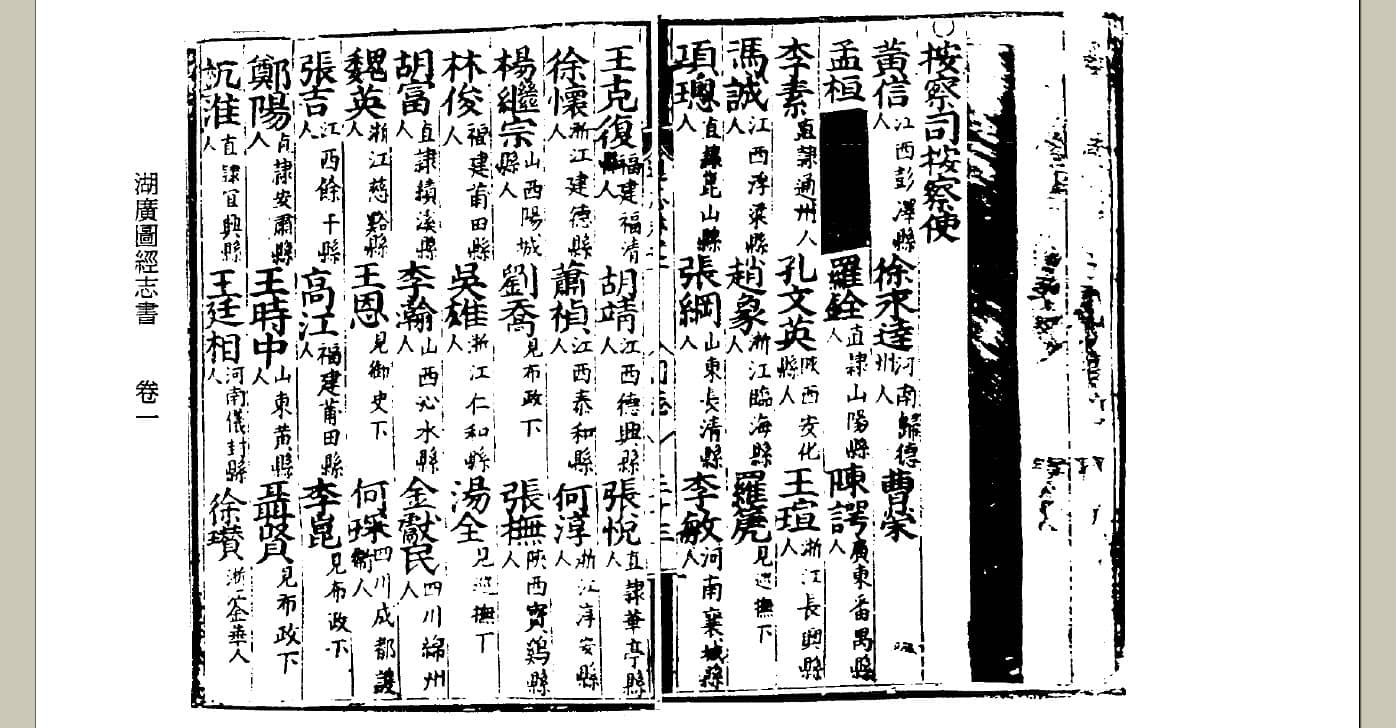 按察司按察使
黃信 江西彭澤縣人 徐永達 河南歸德州人 曹榮
孟桓 羅銓 直隷山陽縣人 陳諤 廣東番禺縣人
李素 直隷通州人 孔文英 陜西安化縣人 王瑄 浙江長興縣人
馮誠 江西浮梁縣人 趙象 浙江臨海縣人 羅篪 見巡撫下
項璁 直隷崑山縣人 張綱 山東長清縣人 李敏 河南襄城縣人
王克復 福建福清縣人 胡靖 江西德興縣人 張悅 直隷華亭縣人
徐懷 浙江建德縣人 蕭禎 江西泰和縣人 何淳 浙江淳安縣人
楊繼宗 山西陽城縣人 劉喬 見布政下 張撫 陜西寶鷄縣人
林俊 福建莆田縣人 吳雄 浙江仁和縣人 湯全 見巡撫下
胡富 直隷績溪縣人 李瀚 山西沁水縣人 金獻民 四川綿州人
魏英 浙江慈谿縣人 王恩 見御史下 何琛 四川成都護衞人
張吉 江西餘干縣人 高江 福建莆田縣人 李崑 見布政下
鄭陽 直隷安肅縣人 王時中 山東黃縣人 聶賢 見布政下
杭淮 直隷宜興縣人 王廷相 河南儀封縣人 徐瓚 浙江金華人
湖廣圖經志書 卷一